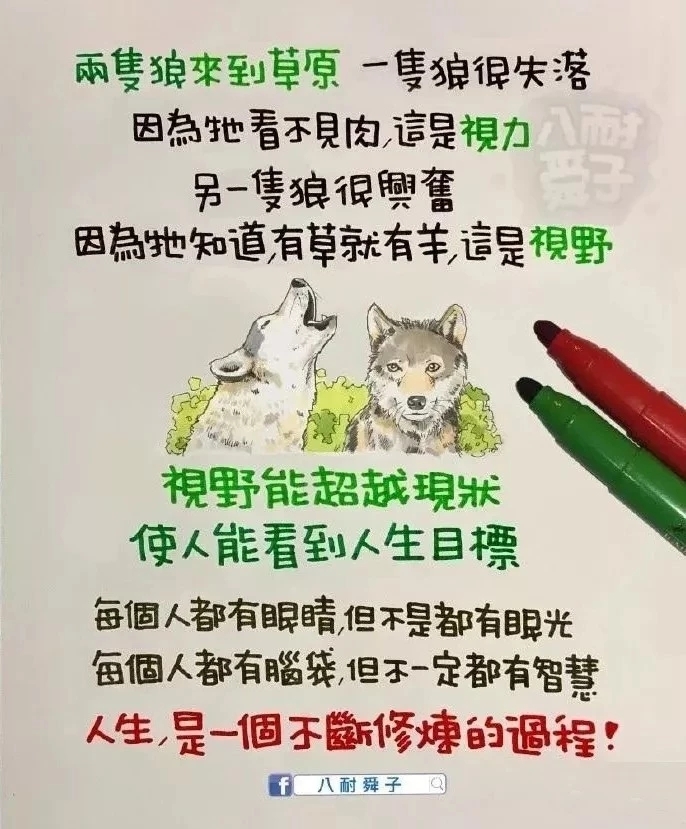 兩隻狼來到草原 一隻狼很失落
因為牠看不見肉,這是視力
八耐舜子
另一隻狼很興奮
因為牠知道,有草就有羊,這是視野
視野能超越現狀
使人能看到人生目標
每個人都有眼睛,但不是都有眼光
每個人都有腦袋,但不一定都有智慧
人生,是一個不斷修煉的過程!
f 八耐舜子